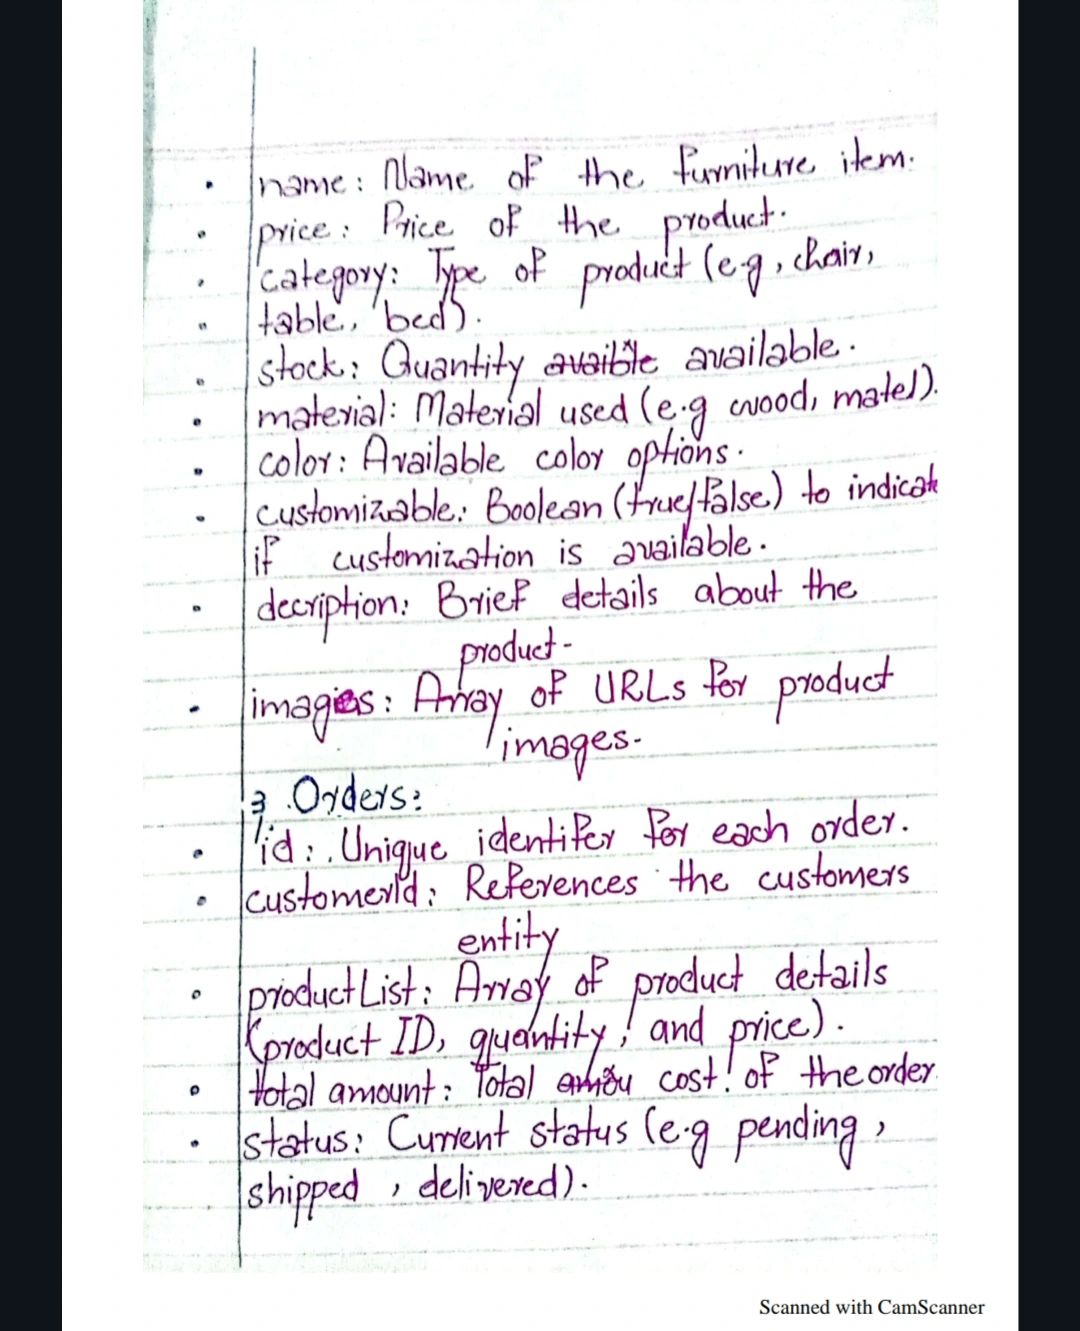 • name: Name of the furniture item.
• price: Price of the product.
• category: Type of product (e.g, chair,
• table, bed).
• stock: Quantity avaible available.
• material: Material used (e.g wood, matel).
• color: Available color options.
• customizable: Boolean (true/false) to indicate
if customization is available.
• decription: Brief details about the
product-
• images: Array of URLs for product
images-
3. Orders:
• id: Unique identifer for each order.
• customerId: References the customers
entity
• productList: Array of product details
(product ID, quantity, and price).
• total amount: Total amou cost of the order.
• status: Current status (e.g pending,
shipped, delivered).
Scanned with CamScanner